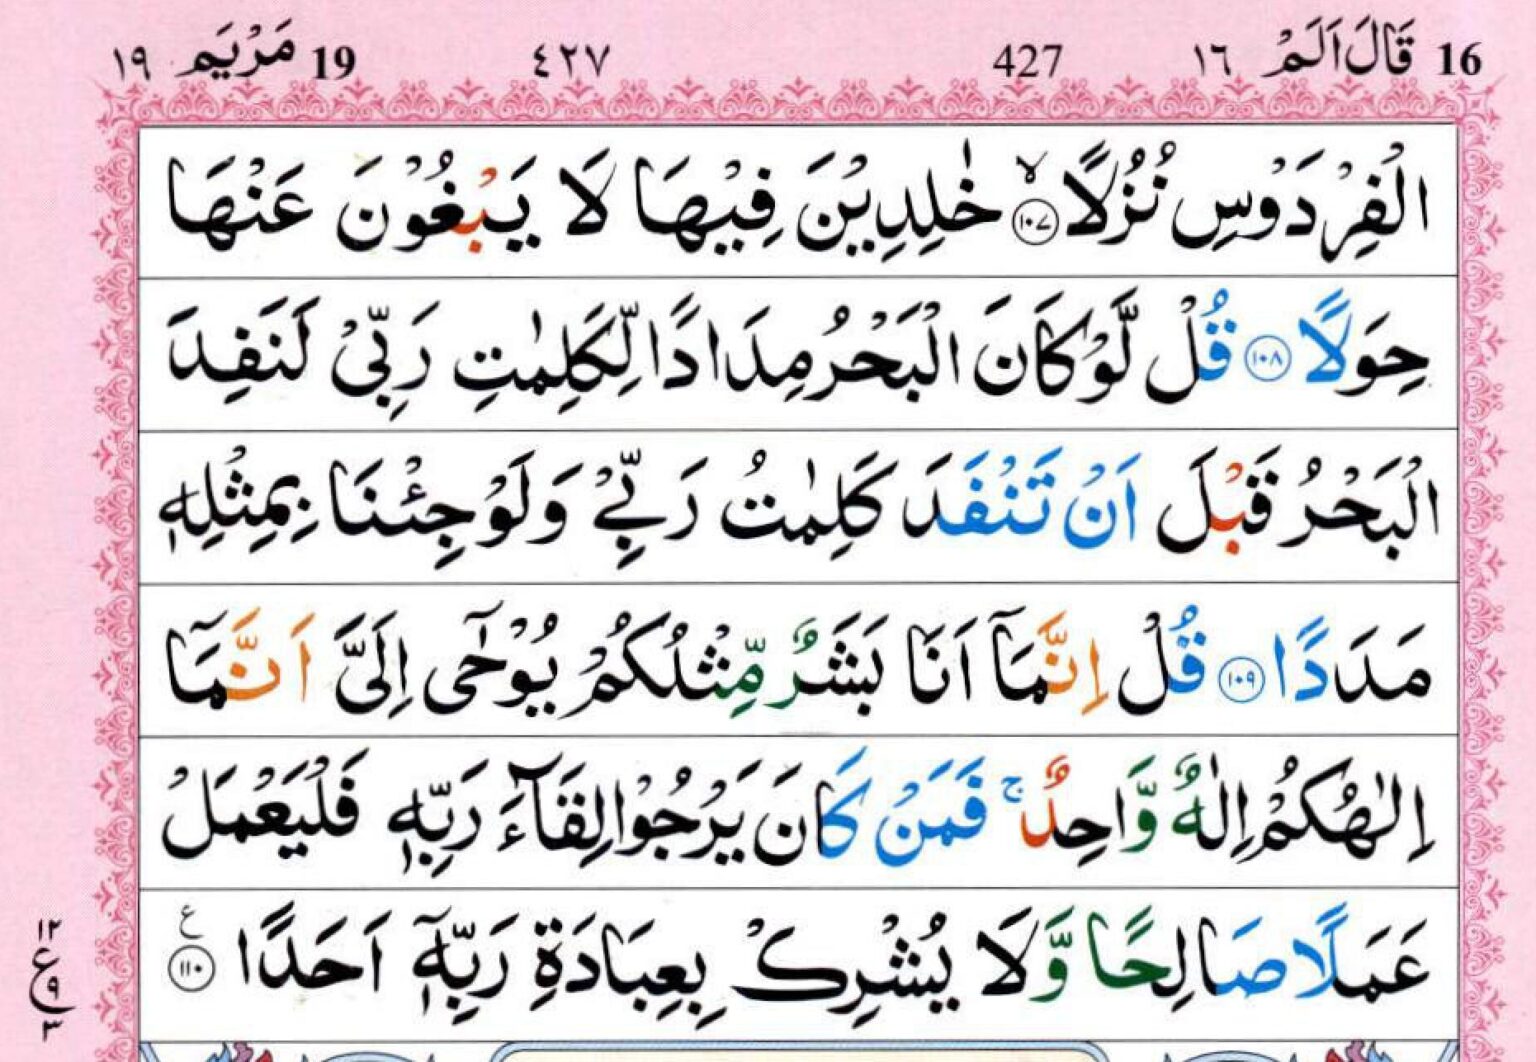 16 قَالَ اَلَمْ ١٦ 427 ٤٢٧ 19 مَرْيَم ١٩
الْفِرْدَوْسِ نُزُلًا ۙ‏﴿۱۰۷﴾ خٰلِدِيْنَ فِيْهَا لَا يَبْغُوْنَ عَنْهَا
حِوَلًا ﴿۱۰۸﴾ قُلْ لَّوْ كَانَ الْبَحْرُ مِدَادًا لِّكَلِمٰتِ رَبِّيْ لَنَفِدَ
الْبَحْرُ قَبْلَ اَنْ تَنْفَدَ كَلِمٰتُ رَبِّيْ وَلَوْ جِئْنَا بِمِثْلِهٖ
مَدَدًا ﴿۱۰۹﴾ قُلْ اِنَّمَاۤ اَنَا بَشَرٌ مِّثْلُكُمْ يُوْحٰۤى اِلَيَّ اَنَّمَاۤ
اِلٰهُكُمْ اِلٰهٌ وَّاحِدٌ ۚ فَمَنْ كَانَ يَرْجُوْا لِقَآءَ رَبِّهٖ فَلْيَعْمَلْ
عَمَلًا صَالِحًا وَّلَا يُشْرِكْ بِعِبَادَةِ رَبِّهٖۤ اَحَدًا ﴿۱۱۰﴾ ع
۱۲
ع
۹
۳